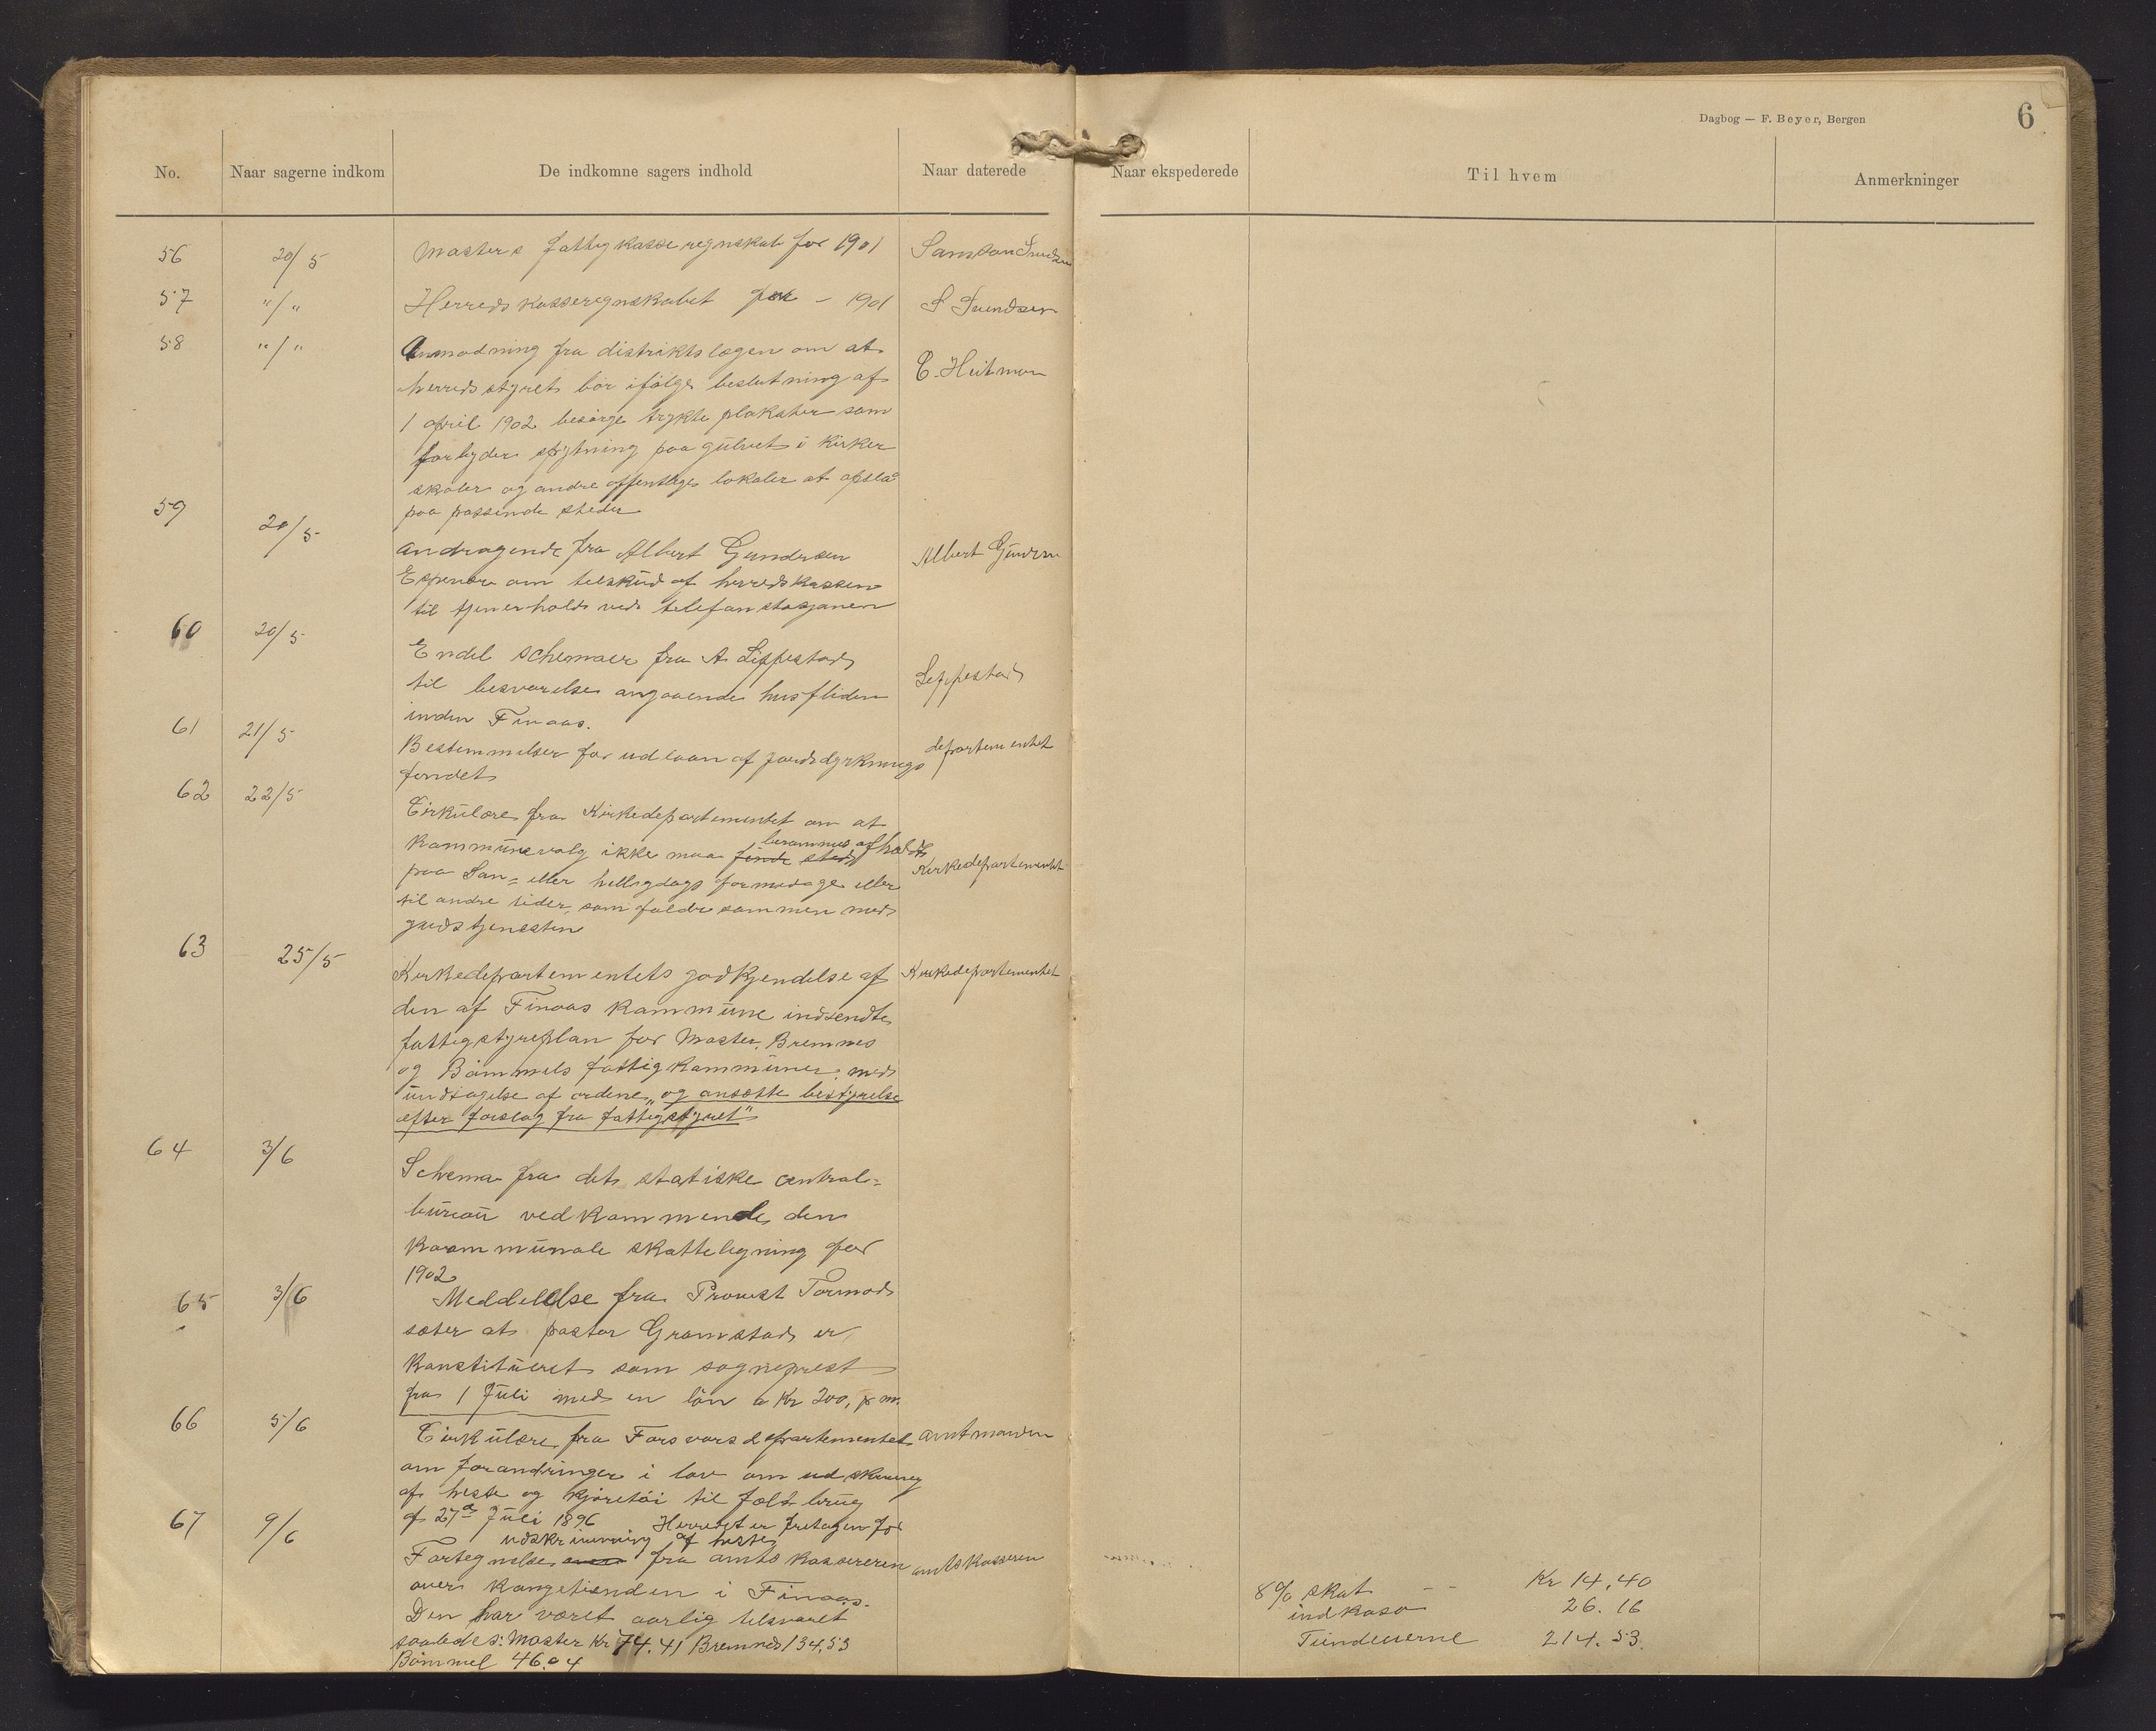 Dagbog — F. Beyer, Bergen
6
No.
Naar sagerne indkom
De indkomne sagers indhold
Naar daterede
Naar ekspederede
Til hvem
Anmerkninger
56 20/5 Mosters fattigkasseregnskab for 1901
57 "/" Herredskasseregnskabet for – 1901 S Svendsen
58 "/" Anmodning fra distriktslægen om at C. Heitman
herredsstyret bør ifølge beslutning af
1 april 1902 besørge trykte plakater som
forbyder spytning paa gulvet i kirker
skoler og andre offentlige lokaler at opslaa
paa passende steder
59 20/5 Andragende fra Albert Gundersen Albert Gundersen
Espevær om tilskud af herredskassen
til tjenerhold ved telefonstasjonen
60 20/5 Endel schemaer fra A. Lippestad Lippestad
til besvarelse angaaende husfliden
inden Finaas.
61 21/5 Bestemmelser for udlaan af jorddyrknings departementet
fondet
62 22/5 Cirkulære fra Kirkedepartementet om at
berammes afholdt
Kommunevalg ikke maa finde sted Kirkedepartementet
paa Søn= eller helligdags formidage eller
til andre tider, som falder sammen med
gudstjenesten
63 25/5 Kirkedepartementets godkjendelse af Kirkedepartementet
den af Finaas Kommune indsendte
fattigstyreplan for Moster, Bremnes
og Bømmels fattigkommuner, med
undtagelse af ordene „og ansætte bestyrelse
efter forslag fra fattigstyret"
64 3/6 Schema fra det statiske central=
bureau vedkommende den
kommunale skatteligning for
1902
65 3/6 Meddelelse fra Provst Tormod
sæter at pastor Gramstad er
konstitueret som sogneprest
fra 1 Juli med en løn a Kr 200, pr m.
66 5/6 Cirkulære fra Forsvarsdepartementet amtmanden
om forandringer i lov om udskrivning
af heste og kjøretøi til feltbrug
af 27de Juli 1896 Herredet er fretagen for
udskrivning af heste
67 9/6 Fortegnelse fra amtskassereren amtskasseren
over Kongetienden i Finaas.
Den har været aarlig tilsvaret
saaledes: Moster Kr 74.41 Bremnes 134,53
Bømmel 46.04
8% skat – – Kr 14.40
indkaso 26.16
214.53.